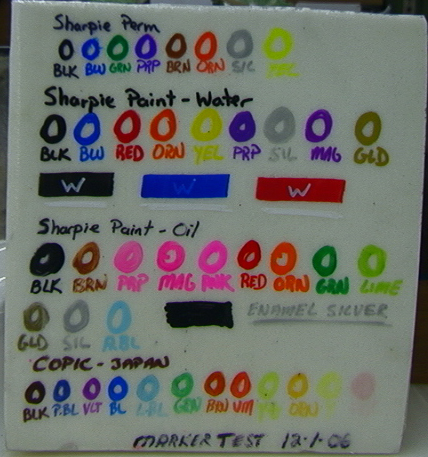 Sharpie Perm
BLK BLU GRN PRP BRN ORN SIL YEL
Sharpie Paint-Water
BLK BLU RED ORN YEL PRP SIL MAG GLD
W W W
Sharpie Paint-Oil
BLK BRN PRP MAG PNK RED ORN GRN LIME
GLD SIL RBL ENAMEL SILVER
COPIC-JAPAN
BLK P.BL VLT BL L-BL GRN BRN VM
MARKER TEST 12-1-06